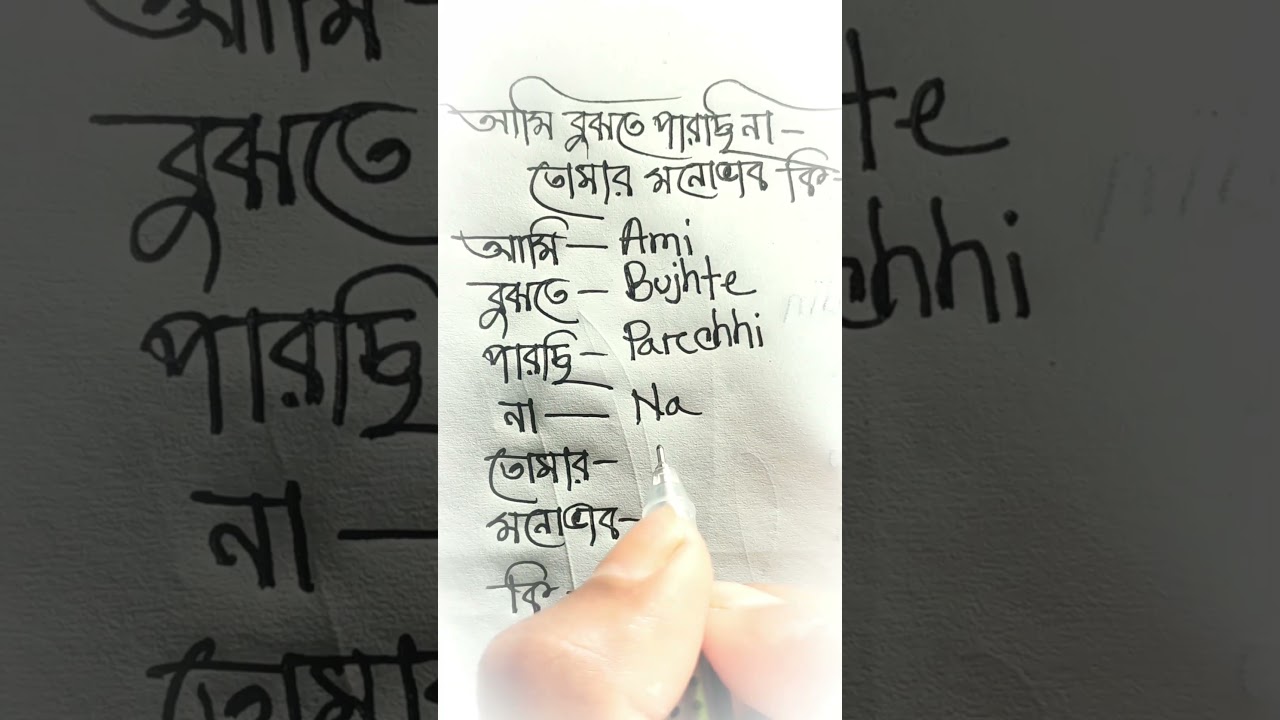 আমি বুঝতে পারছি না –
তোমার মনোভাব কি –
আমি — Ami
বুঝতে – Bujhte
পারছি – Parchhi
না — Na
তোমার –
মনোভাব –
কি –